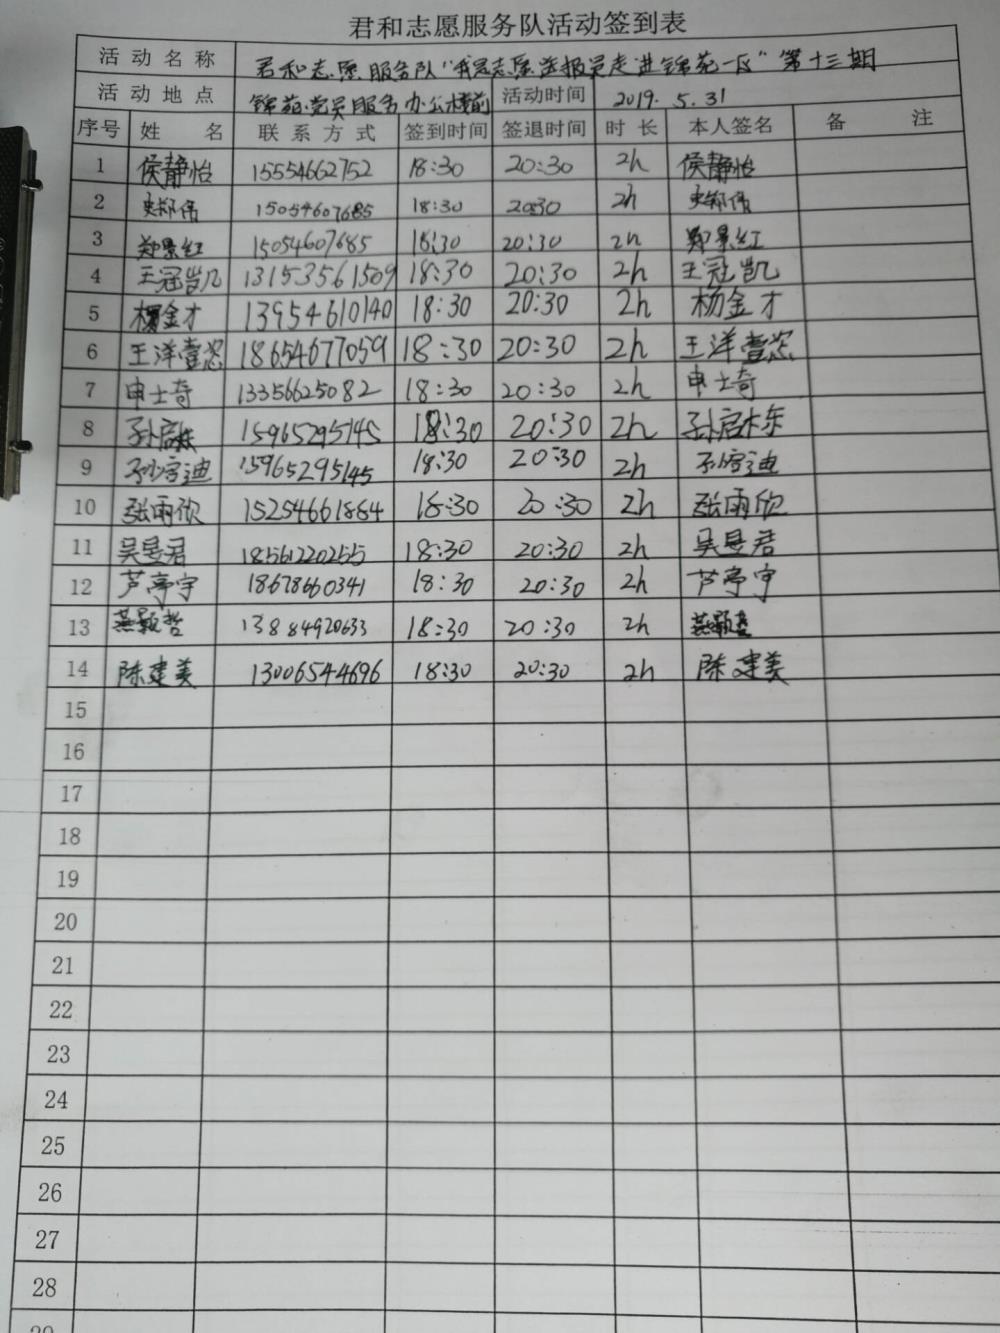 君和志愿服务队活动签到表
活动名称 君和志愿服务队“我是志愿送报员走进锦苑一区”第十三期
活动地点 锦苑党员服务办公楼前 活动时间 2019.5.31
序号 姓名 联系方式 签到时间 签退时间 时长 本人签名 备注
1 侯静怡 15554662752 18:30 20:30 2h 侯静怡
2 史郑伟 15054607685 18:30 2030 2h 史郑伟
3 郑景红 15054607685 18:30 20:30 2h 郑景红
4 王冠凯 13153561509 18:30 20:30 2h 王冠凯
5 杨金才 13954610140 18:30 20:30 2h 杨金才
6 王洋壹 18654677059 18:30 20:30 2h 王洋壹
7 申士奇 13356625082 18:30 20:30 2h 申士奇
8 孙启栋 15965295145 18:30 20:30 2h 孙启栋
9 孙宇迪 15965295145 18:30 20:30 2h 孙宇迪
10 张雨欣 15254661884 18:30 20:30 2h 张雨欣
11 吴昱君 18561220255 18:30 20:30 2h 吴昱君
12 芦亭宇 18678660341 18:30 20:30 2h 芦亭宇
13 燕颖哲 13884920633 18:30 20:30 2h 燕颖哲
14 陈建美 13006544696 18:30 20:30 2h 陈建美
15
16
17
18
19
20
21
22
23
24
25
26
27
28